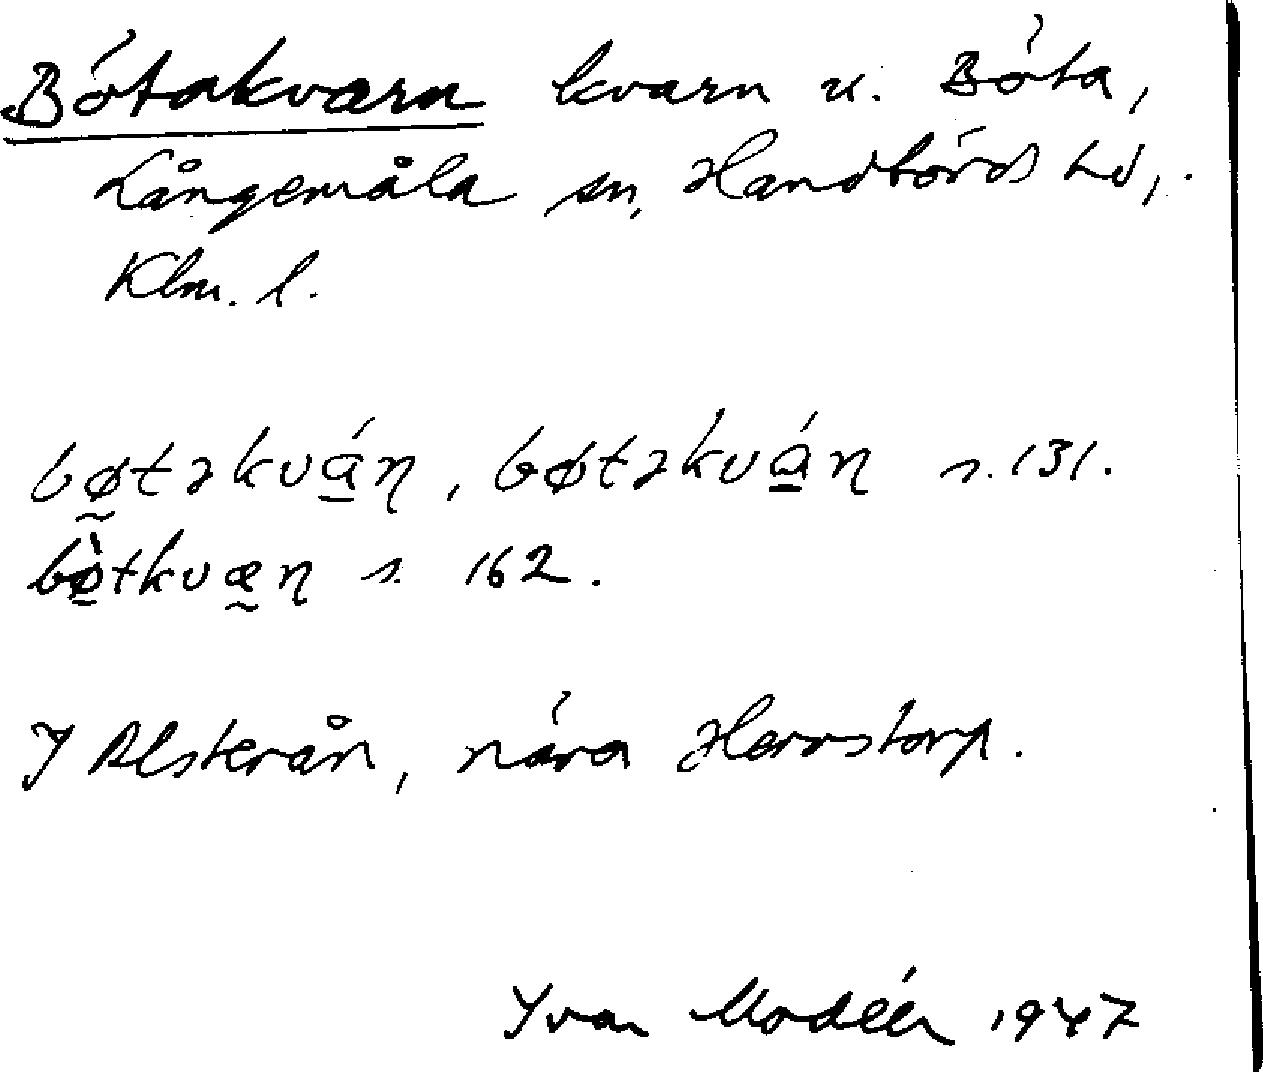 Bötakvarn kvarn u. Böta,
Långemåla sn, Handbörds hd,
Klm. l.
bø̰təkvá̱ɳ, bøtəkvá̱ɳ s. 131.
bø̱̀tkvæ̰ɳ s. 162.
I Alsterån, nära Herrstorp.
Ivar Modéer 1947